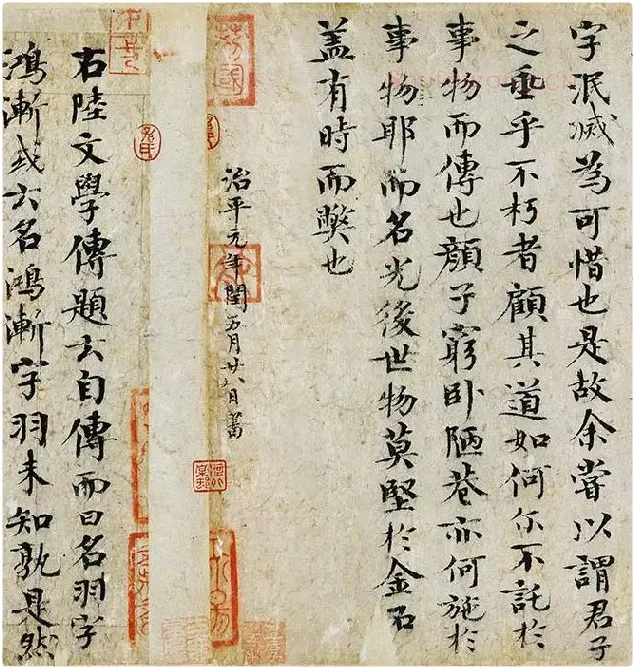 字泯滅為可惜也是故余嘗以謂君子
之垂乎不朽者顧其道如何尓不託於
事物而傳也顔子窮卧陋巷亦何施於
事物耶而名光後世物莫堅於金石
盖有時而獘也
治平元年閏五月廿八日書
右陸文學傳題云自傳而曰名羽字
鴻漸或云名鴻漸字羽未知孰是然